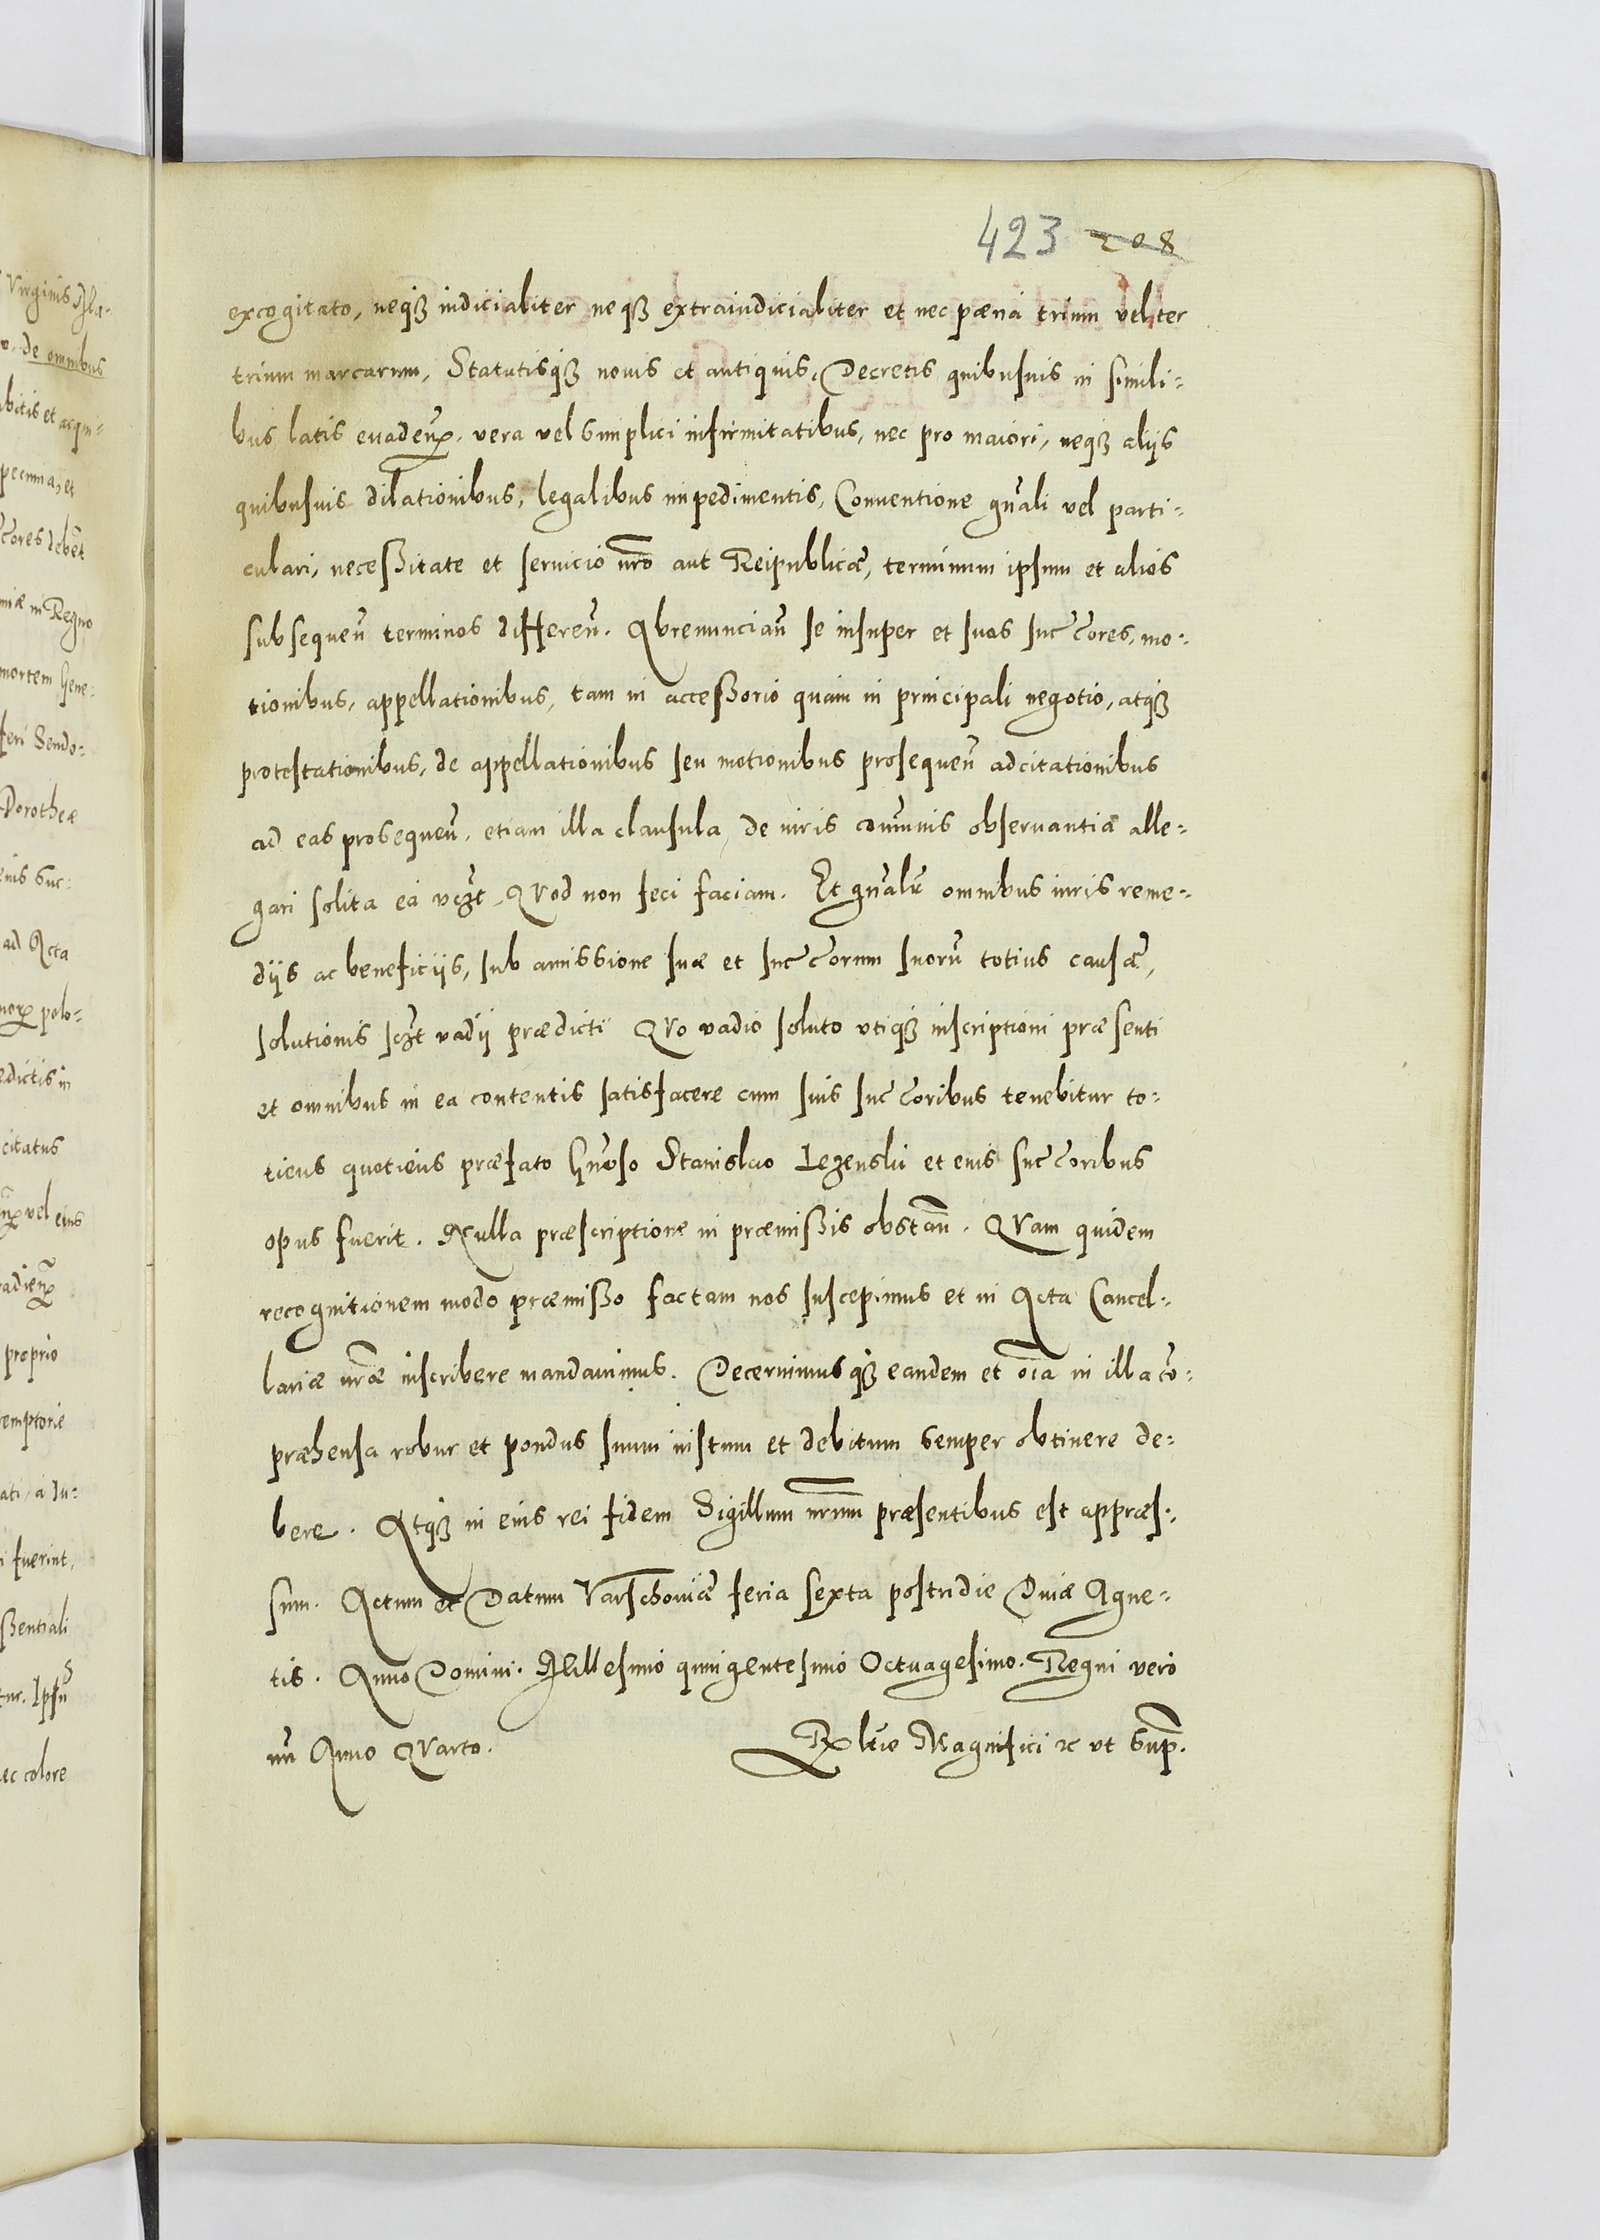 423 208
excogitato, neqȝ iudicialiter neqȝ extraiudicialiter et nec pæna trium vel ter
trium marcarum, Statutisqȝ nouis et antiquis, Decretis quibusuis in simili-
bus latis euadeñ. vera vel simplici infirmitatibus, nec pro maiori, neqȝ aliis
quibusuis dilationibus, legalibus impedimentis, Conuentione gñali vel parti-
culari, neceßitate et seruicio nr̃o aut Reipublicæ, terminum ipsum et alios
subsequeñ terminos differeñ. Abrenunciañ se insuper et suos succ̃ores, mo-
tionibus, appellationibus, tam in acceßorio quam in principali negotio, atqȝ
protestationibus, de appellationibus seu motionibus prosequeñ adcitationibus
ad eas prosequeñ. etiam illa clausula de iuris com̃unis obseruantia alle-
gari solita ea vcȝt. Quod non feci faciam. Et gñalr̃ omnibus iuris reme-
diis ac beneficiis, sub amissione suæ et succ̃orum suorũ totius causæ,
solutionis scȝt vadii prædicti Quo vadio soluto vtiqȝ inscriptioni præsenti
et omnibus in ea contentis satisfacere cum suis succ̃oribus tenebitur to-
tiens quotiens præfato Gñoso Stanislao Iezenski et eius succ̃oribus
opus fuerit. Nulla præscriptione in præmißis obstañ. Quam quidem
recognitionem modo præmißo factam nos suscepimus et in Acta Cancel-
lariæ nr̃æ inscribere mandauimus. Decernimusqȝ eandem et oĩa in illa cõ-
præhensa robur et pondus suum iustum et debitum semper obtinere de-
bere. Atqȝ in eius rei fidem Sigillum nr̃um præsentibus est appræs-
sum. Actum et Datum Varschouiæ feria sexta postridie Diuæ Agne-
tis. Anno Domini. Millesimo quingentesimo Octuagesimo. Regni vero
nr̃i Anno Quarto.
Rel̃tio Magnifici ꝛc vt Sup̃.
Virginis
de omnibus
bitis et acqui-
pecunia, et
cores debẽt
niæ in Regno
mortem Gene-
feri Sendo-
Dorotheæ
eius Suc-
ad Acta
polo-
edictis in
citatus
vel eius
proprio
remptorie
fuerint,
ßentiali
Ipsũ
ec colore